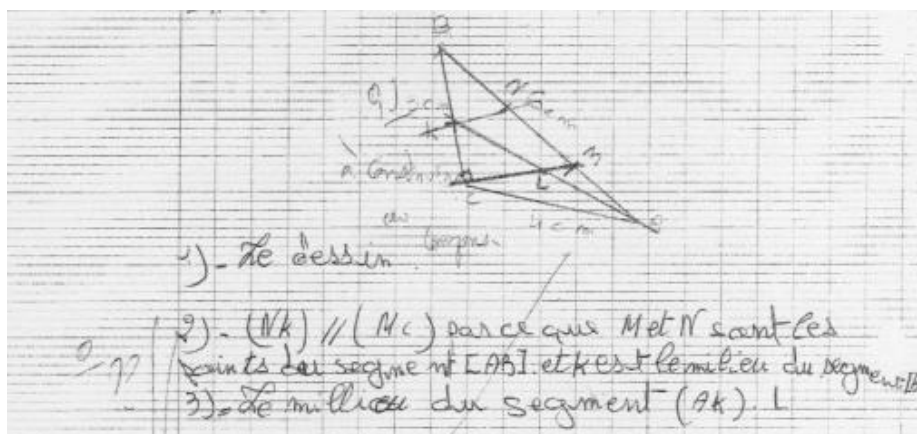 B
N
K
M
L
C
4 cm
1)- Le dessin
2)- (NK) // (Mc) parce que M et N sont les
points du segment [AB]. et k est le milieu du segment
3)- Le millieu du segment (AK). L